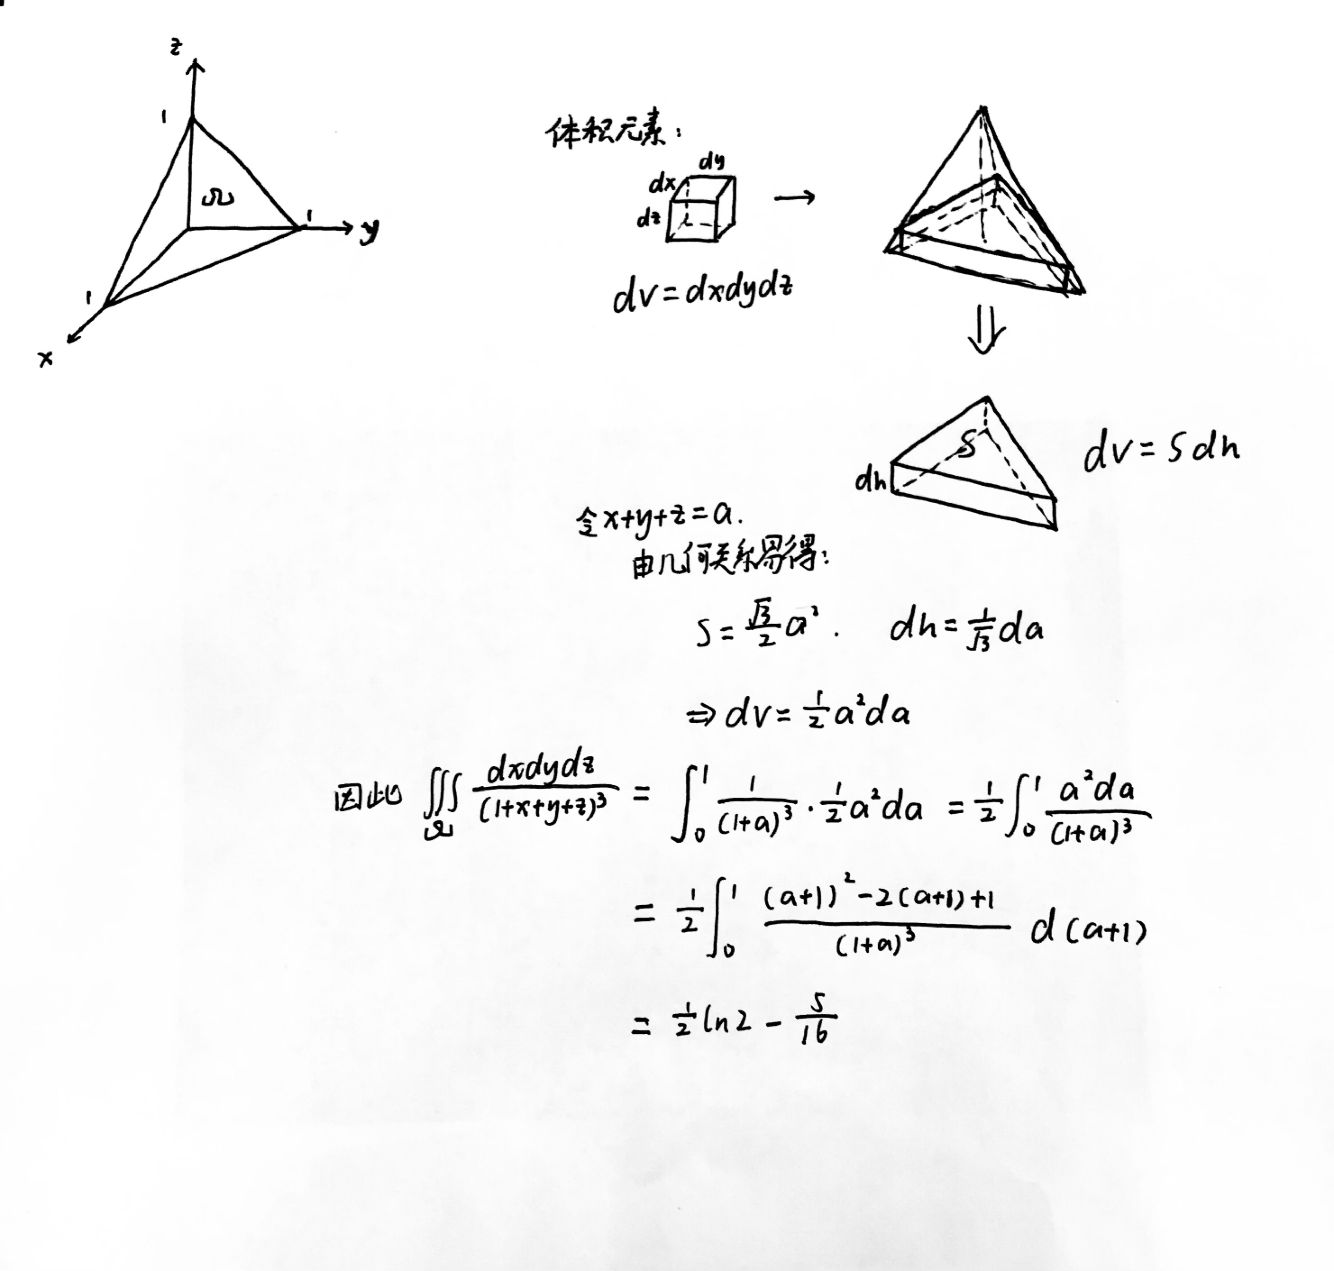 z
1
Ω
1
y
1
x
体积元素:
dy
dx
dz
dv=dxdydz
S
dh
dv=Sdh
令x+y+z=a.
由几何关系易得:
S=√3/2 a². dh=1/√3 da
⇒dv=1/2 a²da
因此 ∭_Ω dxdydz/(1+x+y+z)³ = ∫₀¹ 1/(1+a)³ · 1/2 a²da = 1/2 ∫₀¹ a²da/(1+a)³
= 1/2 ∫₀¹ ((a+1)²-2(a+1)+1)/(1+a)³ d(a+1)
= 1/2 ln2 - 5/16